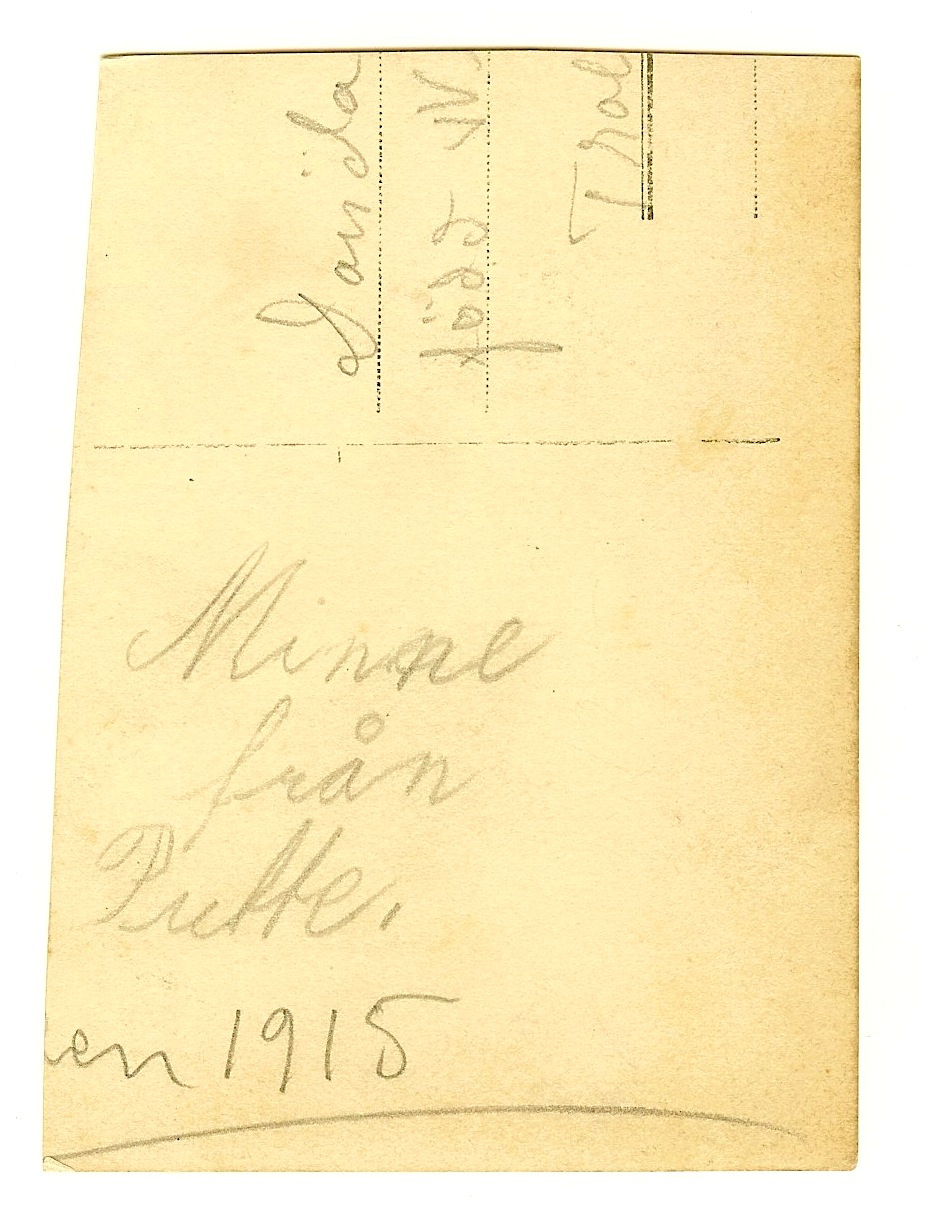 Davida
född W.
Tral
Minne
från
Putte.
en 1915